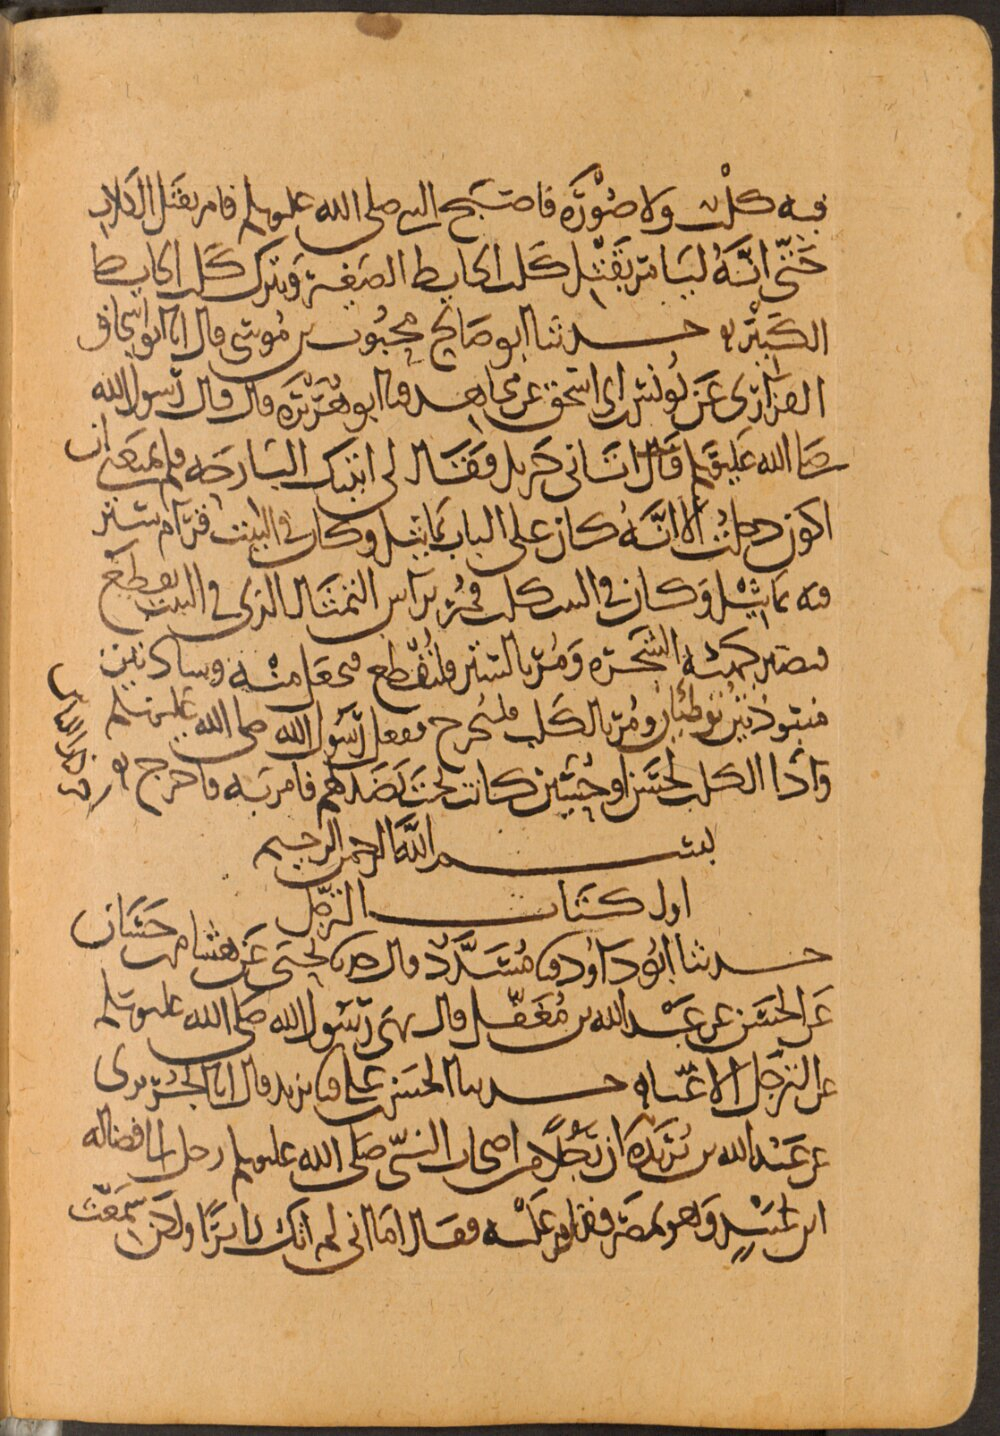 فيه كلب ولا صورة فاصبح النبي صلى الله عليه وسلم فامر بقتل الكلاب
حتى انه ليامر بقتل كلب الحايط الصغير ويترك كلب الحايط
الكبير حدثنا ابو صالح محبوب بن موسى قال انا ابو اسحاق
الفزاري عن يونس بن ابي اسحق عن مجاهد قثنا ابو هريرة قال قال رسول الله
صلى الله عليه وسلم قال اتاني جبريل فقال لي اتيتك البارحة فلم يمنعني ان
اكون دخلت الا انه كان على الباب تماثيل وكان في البيت قرام ستر
فيه تماثيل وكان في البيت كلب فمر براس التمثال الذي في البيت يقطع
فيصير كهيئة الشجرة ومر بالستر فليقطع فيجعل منه وسادتين
منبوذتين توطئان ومر بالكلب فليخرج ففعل رسول الله صلى الله عليه وسلم
واذا الكلب لحسن او حسين كانت تحت نضد لهم فامر به فاخرج
بسم الله الرحمن الرحيم
اول كتاب الترجل
حدثنا ابو داود قثنا مسدد قال ثنا يحيى عن هشام بن حسان
عن الحسن عن عبد الله بن مغفل قال نهى رسول الله صلى الله عليه وسلم
عن الترجل الا غبا حدثنا الحسن بن علي قثنا يزيد قال انا الجريري
عن عبد الله بن بريدة ان رجلا من اصحاب النبي صلى الله عليه وسلم رحل الى فضالة
ابن عبيد وهو بمصر فقدم عليه فقال اما اني لم اتك زايرا ولكن سمعت